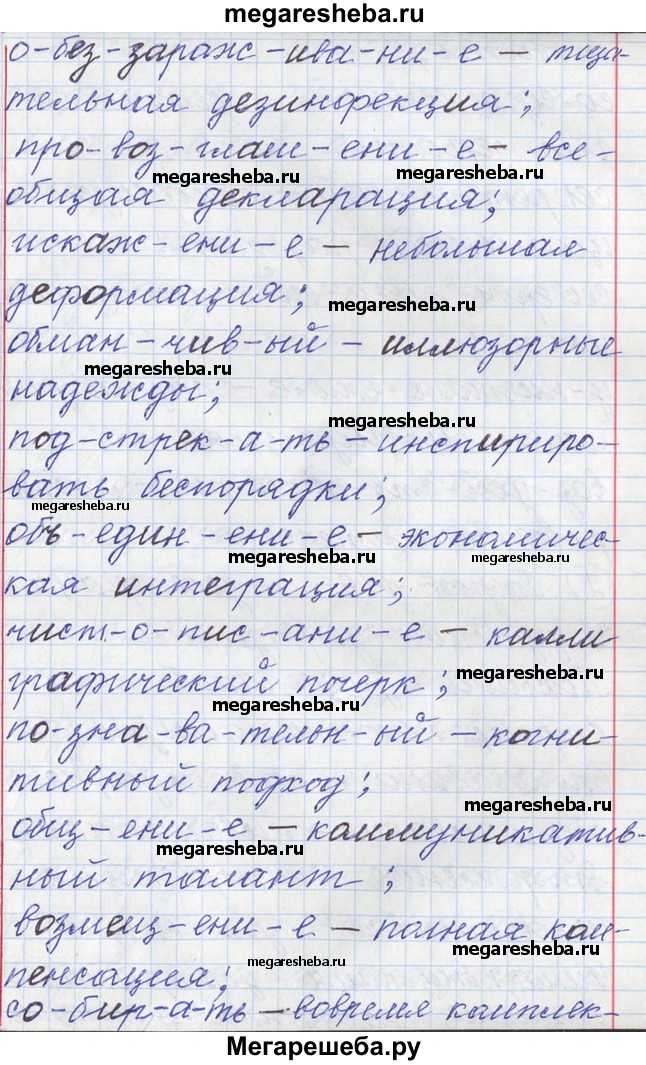 megaresheba.ru
о-без-зараж-ива-ни-е – тща-
тельная дезинфекция;
про-воз-глаш-ени-е – все-
megaresheba.ru megaresheba.ru
общая декларация;
искаж-ени-е – небольшая
деформация;
megaresheba.ru
обман-чив-ый – иллюзорные
megaresheba.ru
надежды;
megaresheba.ru
под-стрек-а-ть – инспириро-
вать беспорядки;
megaresheba.ru
объ-един-ени-е – экономичес-
megaresheba.ru megaresheba.ru
кая интеграция;
чист-о-пис-ани-е – калли
графический почерк;
megaresheba.ru
megaresheba.ru
по-зна-ва-тельн-ый – когни-
тивный подход;
megaresheba.ru
общ-ени-е – коммуникатив-
megaresheba.ru
ный талант;
возмещ-ени-е – полная ком-
megaresheba.ru
пенсация;
megaresheba.ru
со-бир-а-ть – вовремя комплек-
Мегарешеба.ру